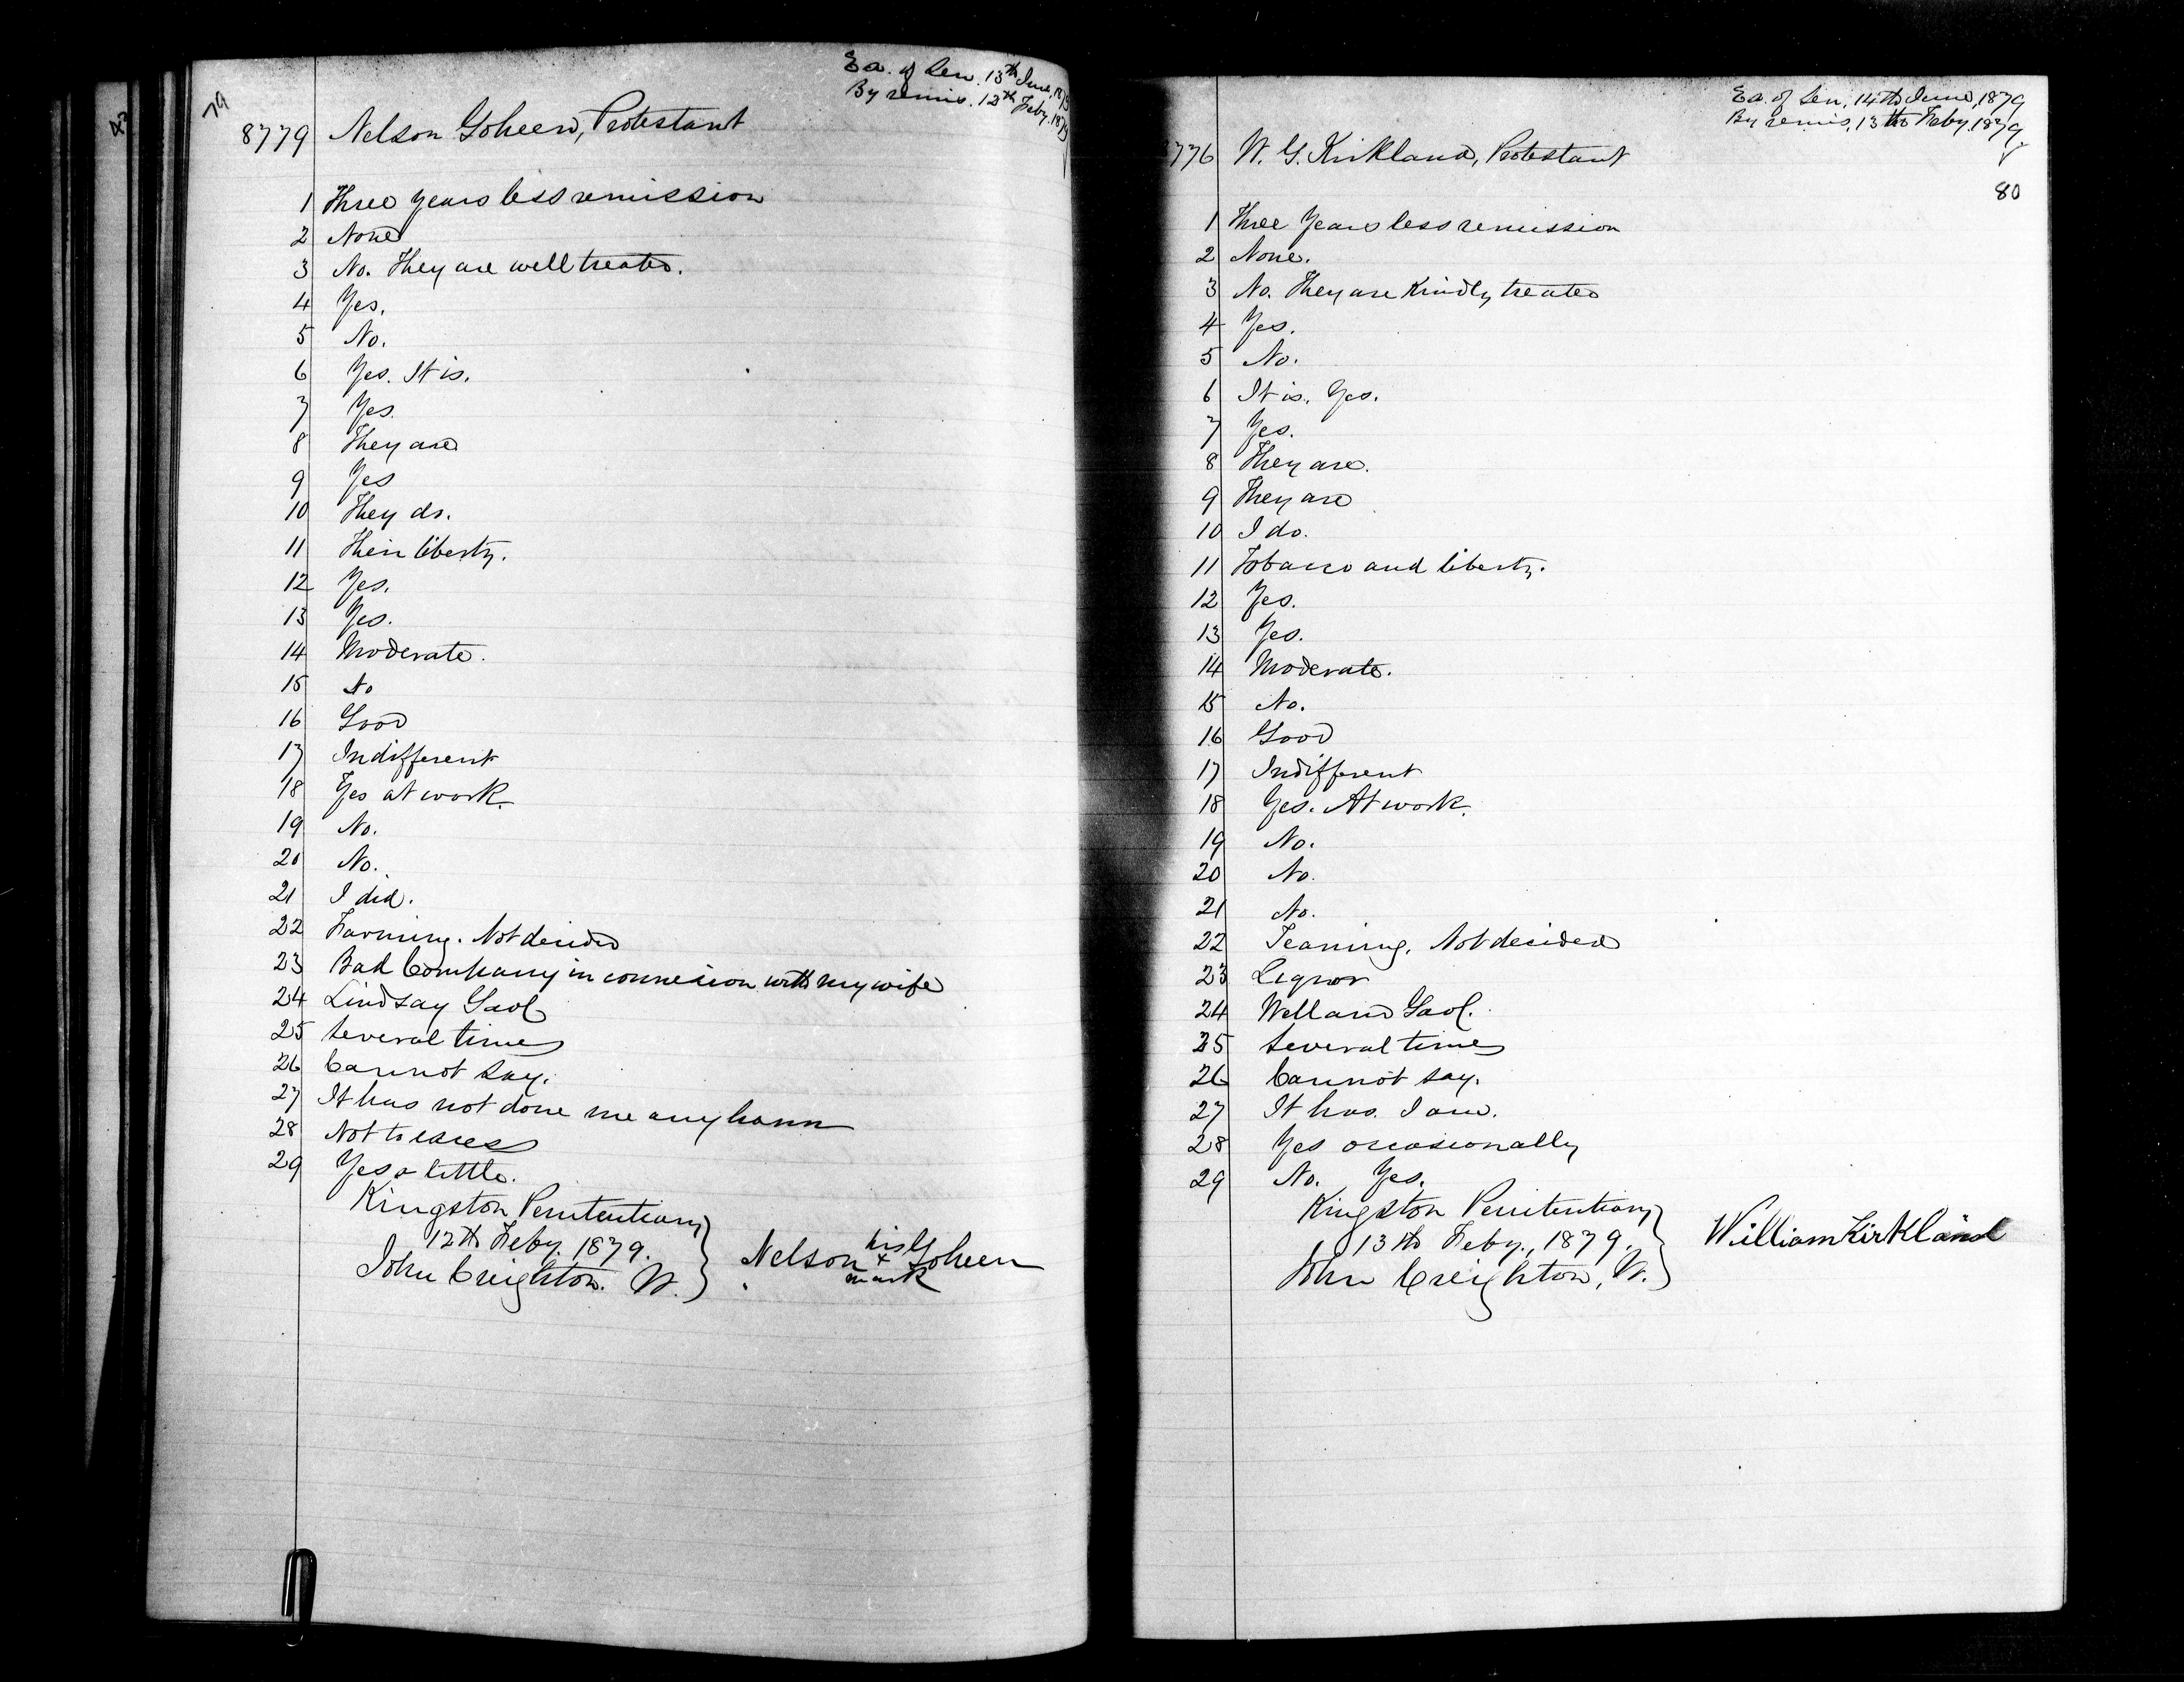 79
Ex. of Sen. 13th June, 1879
By remis. 12th Feby. 1879
8779 Nelson Goheen, Protestant
1 Three years less remission
2 None
3 No. They are well treated.
4 Yes.
5 No.
6 Yes. It is.
7 Yes.
8 They are
9 Yes
10 They do.
11 Their liberty.
12 Yes.
13 Yes.
14 Moderate.
15 No
16 Good
17 Indifferent
18 Yes at work.
19 No.
20 No.
21 I did.
22 Farming. Not decided
23 Bad Company in connexion with my wife
24 Lindsay Gaol
25 Several times
26 Cannot say.
27 It has not done me any harm
28 Not to excess
29 Yes a little.
Kingston Penitentiary
12th Feby. 1879.
John Creighton. W.
Nelson his x mark Goheen
Ex. of Sen. 14th June, 1879
By remis. 13th Feby. 1879.
80
776 W. G. Kirkland, Protestant
1 Three Years less remission
2 None.
3 No. They are Kindly treated
4 Yes.
5 No.
6 It is. Yes.
7 Yes.
8 They are.
9 They are
10 I do.
11 Tobacco and liberty.
12 Yes.
13 Yes.
14 Moderate.
15 No.
16 Good
17 Indifferent
18 Yes. At work.
19 No.
20 No.
21 No.
22 Teaming. Not decided
23 Liquor
24 Welland Gaol.
25 Several times
26 Cannot say.
27 It has. I am.
28 Yes occasionally
29 No. Yes.
Kingston Penitentiary
13th Feby., 1879.
John Creighton, W.
William Kirkland